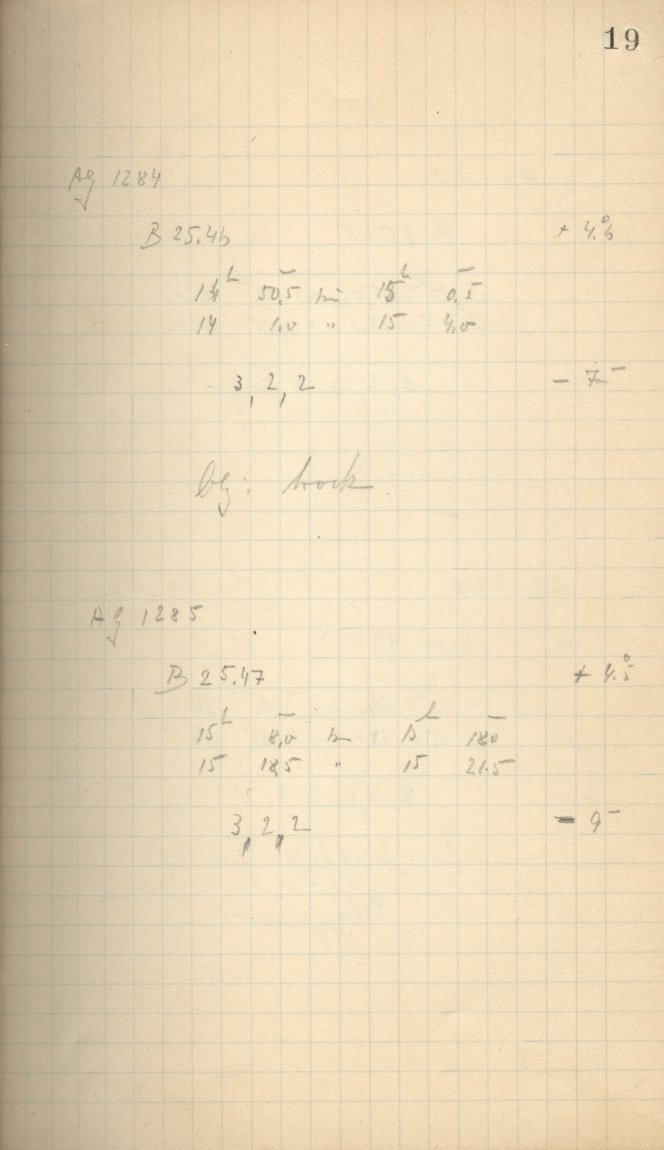 19
Ag 1284
B 25.46 + 4.°6
14ʰ 50,5 bis 15ʰ 0.5
14 1,0 " 15 4,0
3, 2, 2 − 7
Ag 1285
B 25.47 + 4.°5
15ʰ 8,0 bis 15ʰ 18,0
15 18,5 " 15 21.5
3, 2, 2 − 9